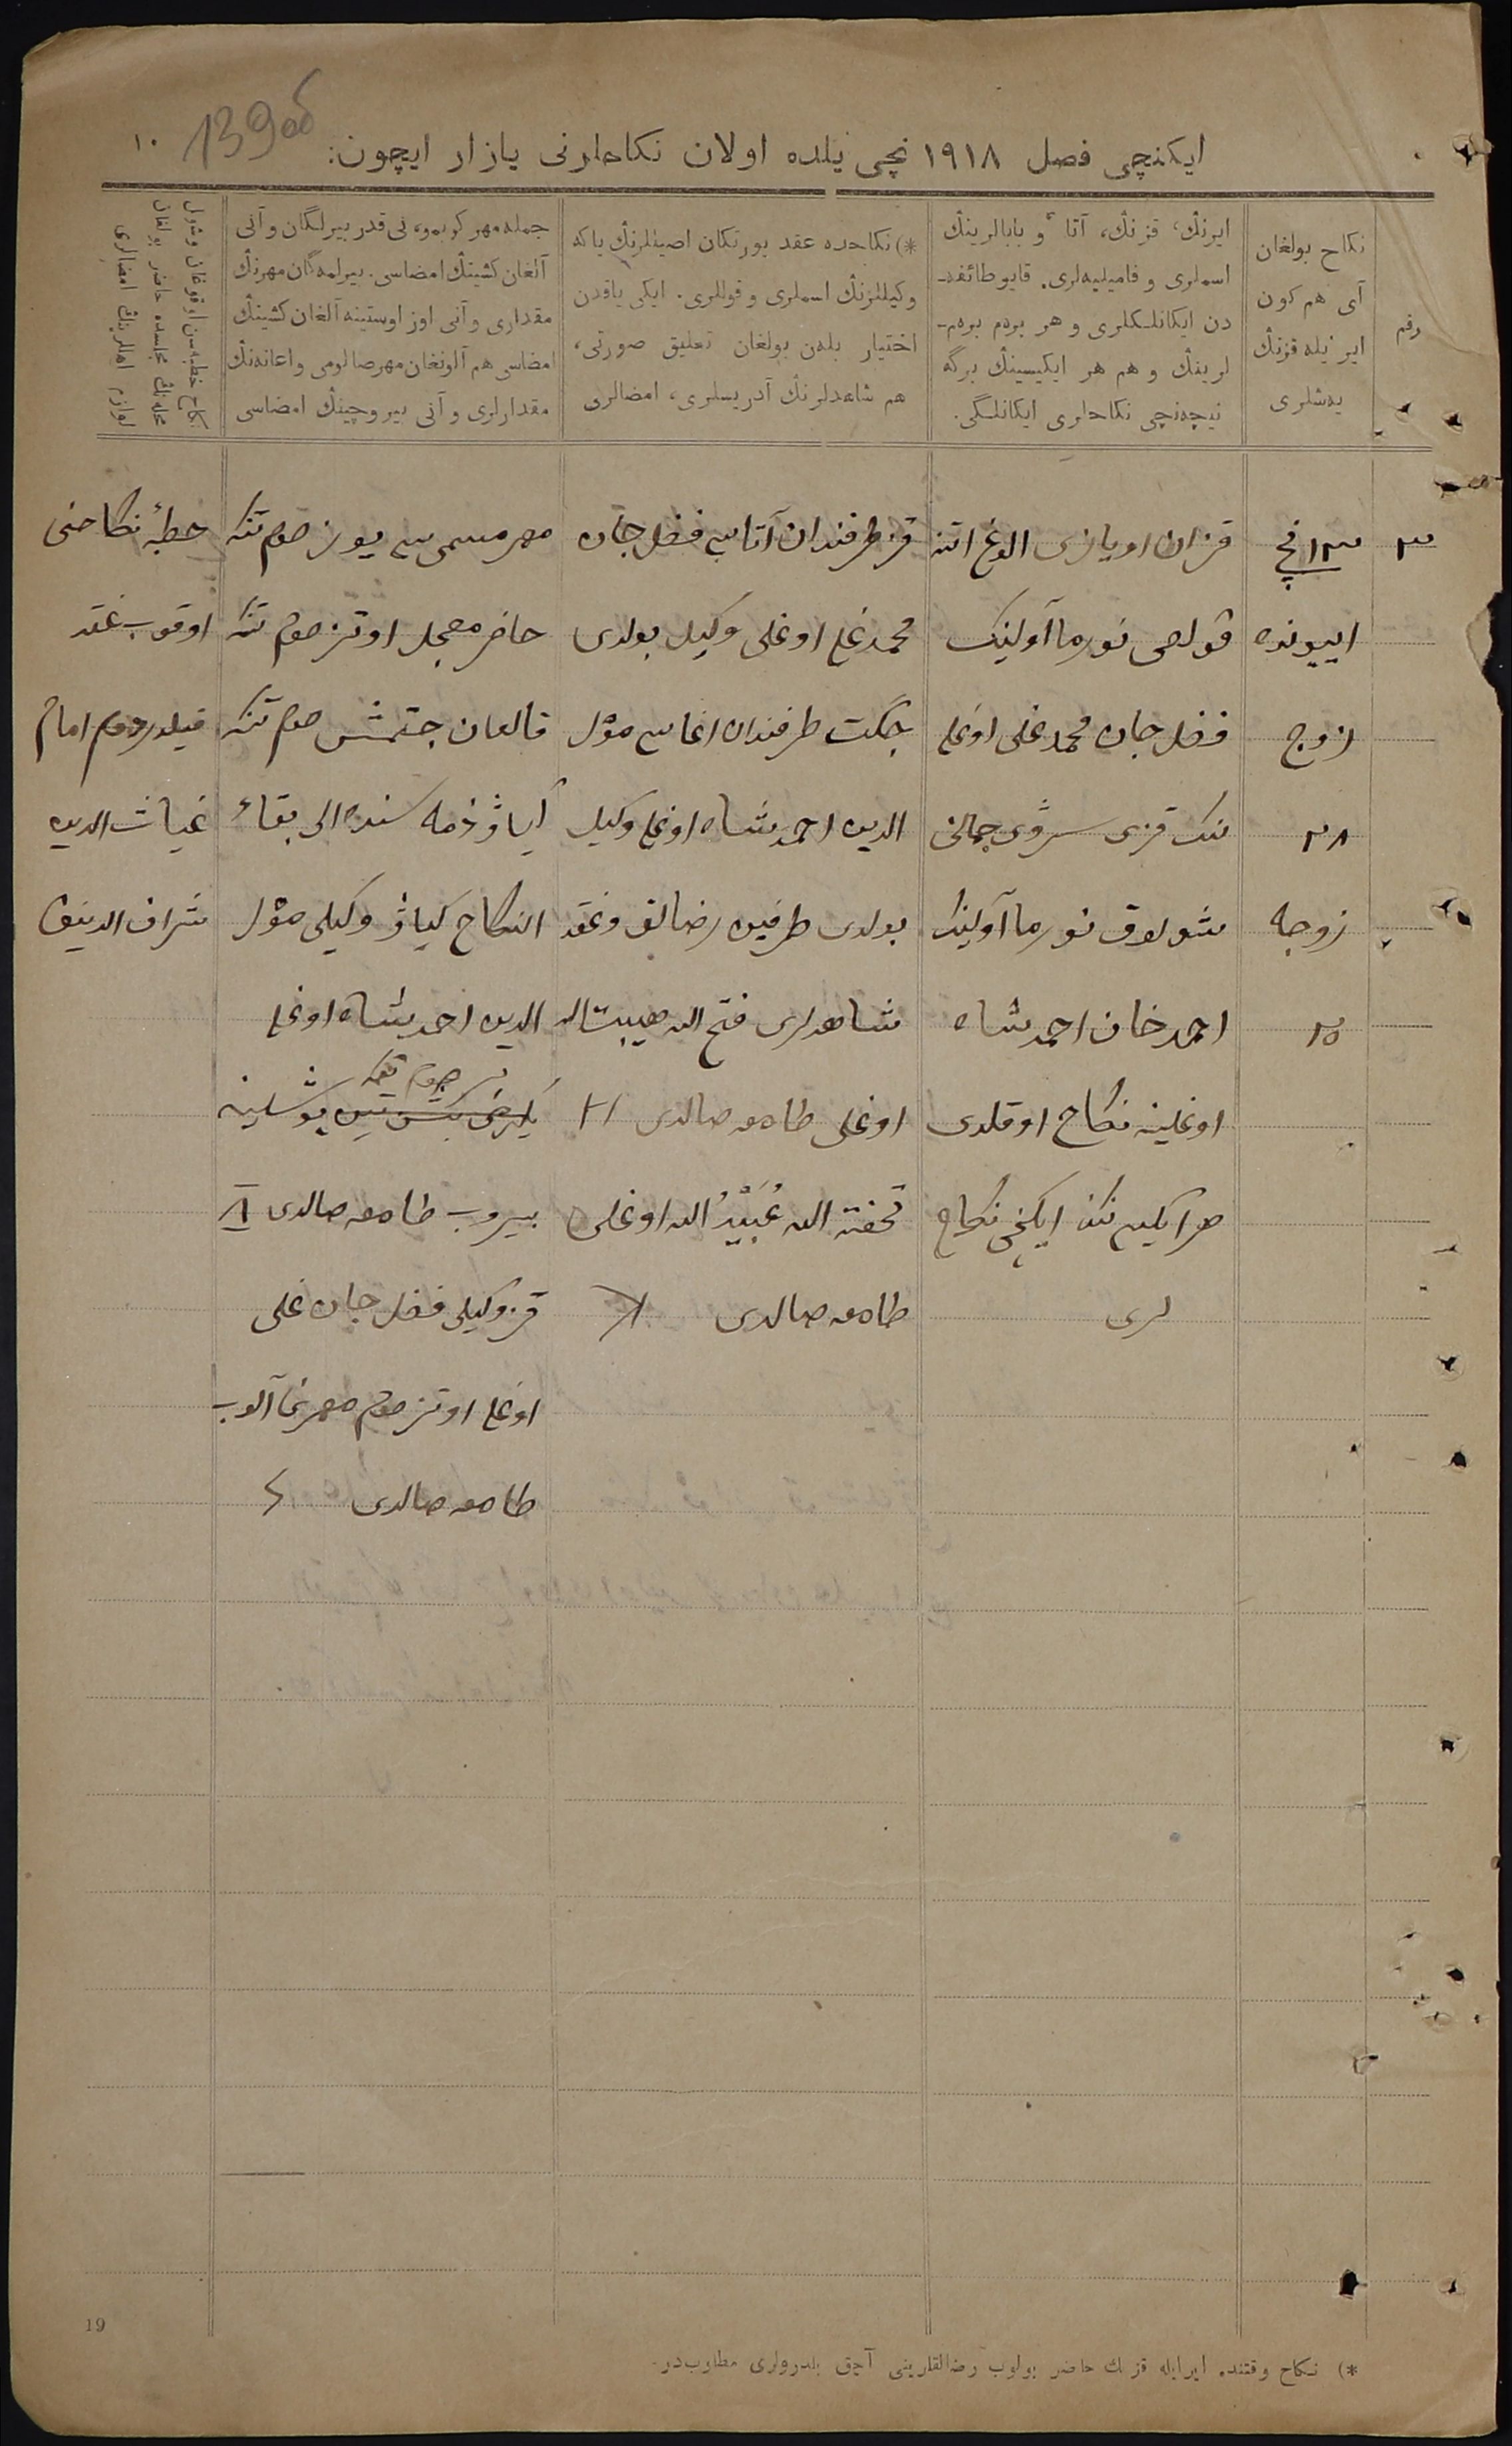 139об
١٠
ایكنچی فصل ١٩١٨ نچی ییلده اولان نكاحلرنی یازار ایچون:
رقم
نكاح بولغان
آی هم كون
ایر ییله قزنڭ
یهشلری
ایرنڭ، قزنڭ، آتا و بابالرینڭ
اسملری و فامیلیهلری. قایو طائفه-
دن ایكانلكلری و هر بردم بردم-
لرینڭ و هم هر ایكیسینڭ برگه
نیچهنچی نكاحلری ایكانلگی.
*) نكاحده عقد یورتكان اصیللرنڭ یاكه
وكیللرنڭ اسملری و قوللری. ایكی یاقدن
اختیار بلهن بولغان تعلیق صورتی،
هم شاهدلرنڭ آدریسلری، امضالری
جمله مهر كوبمو، نی قدر بیرلگان و آنی
آلغان كشینڭ امضاسی. بیرلمهگان مهرنڭ
مقداری و آنی اوز اوستینه آلغان كشینڭ
امضاسی هم آلونغان مهر صالومی و اعانهنڭ
مقدارلری و آنی بیروچینڭ امضاسی
نكاح خطبهسن اوقوغان و شول
محلهنڭ مجلسده حاضر بولغان
لوازم اهللرینڭ امضالری
٣
١٣نچی
اییونده
زوج
٢٨
زوجه
٢٥
قزان اویازی الوغ اتنه
قولصی نورما آولینڭ
فضل جان محمدعلی اوغلی
ننك قزی سروی جمالنی
شولوق نورما آولینڭ
احمدخان احمدشاه
اوغلینه نكاح اوقلدی
هر ایكیسینڭ ایكنچی نكاح
لری
قز طرفندان آتاسی فضل جان
محمدعلی اوغلی وكیل بولدی
جگت طرفندان اغاسی
الدین احمدشاه اوغلی وكیل
بولدی طرفین رضالق وعقد
شاهدلری فتح الله هیبت الله
اوغلی طامغه صالدی
تحفت الله عُبَیْدُ الله اوغلی
طامغه صالدی
مهر مسمی سی یوز صوم تنكه
حاضر معجل اوتز صوم تنكه
قالغان جتمش صوم تنكه
كیاو ذمه سنده الی بقاء
النكاح كیاو وكیلی
الدین احمدشاه اوغلی
صوم تنكه
بیروب طامغه صالدی
قز وكیلی فضل جان علی
اوغلی اوتز صوم مهرنی آلوب
طامغه صالدی
خطبهٔ نكاحنی
اوقوب عقد
قیلدردم امام
غیاث الدین
شراف الدینف
19
*) نكاح وقتنده ایرایله قزنڭ حاضر بولوب رضالقلرینی آچق بلدرولری مطلوب در.